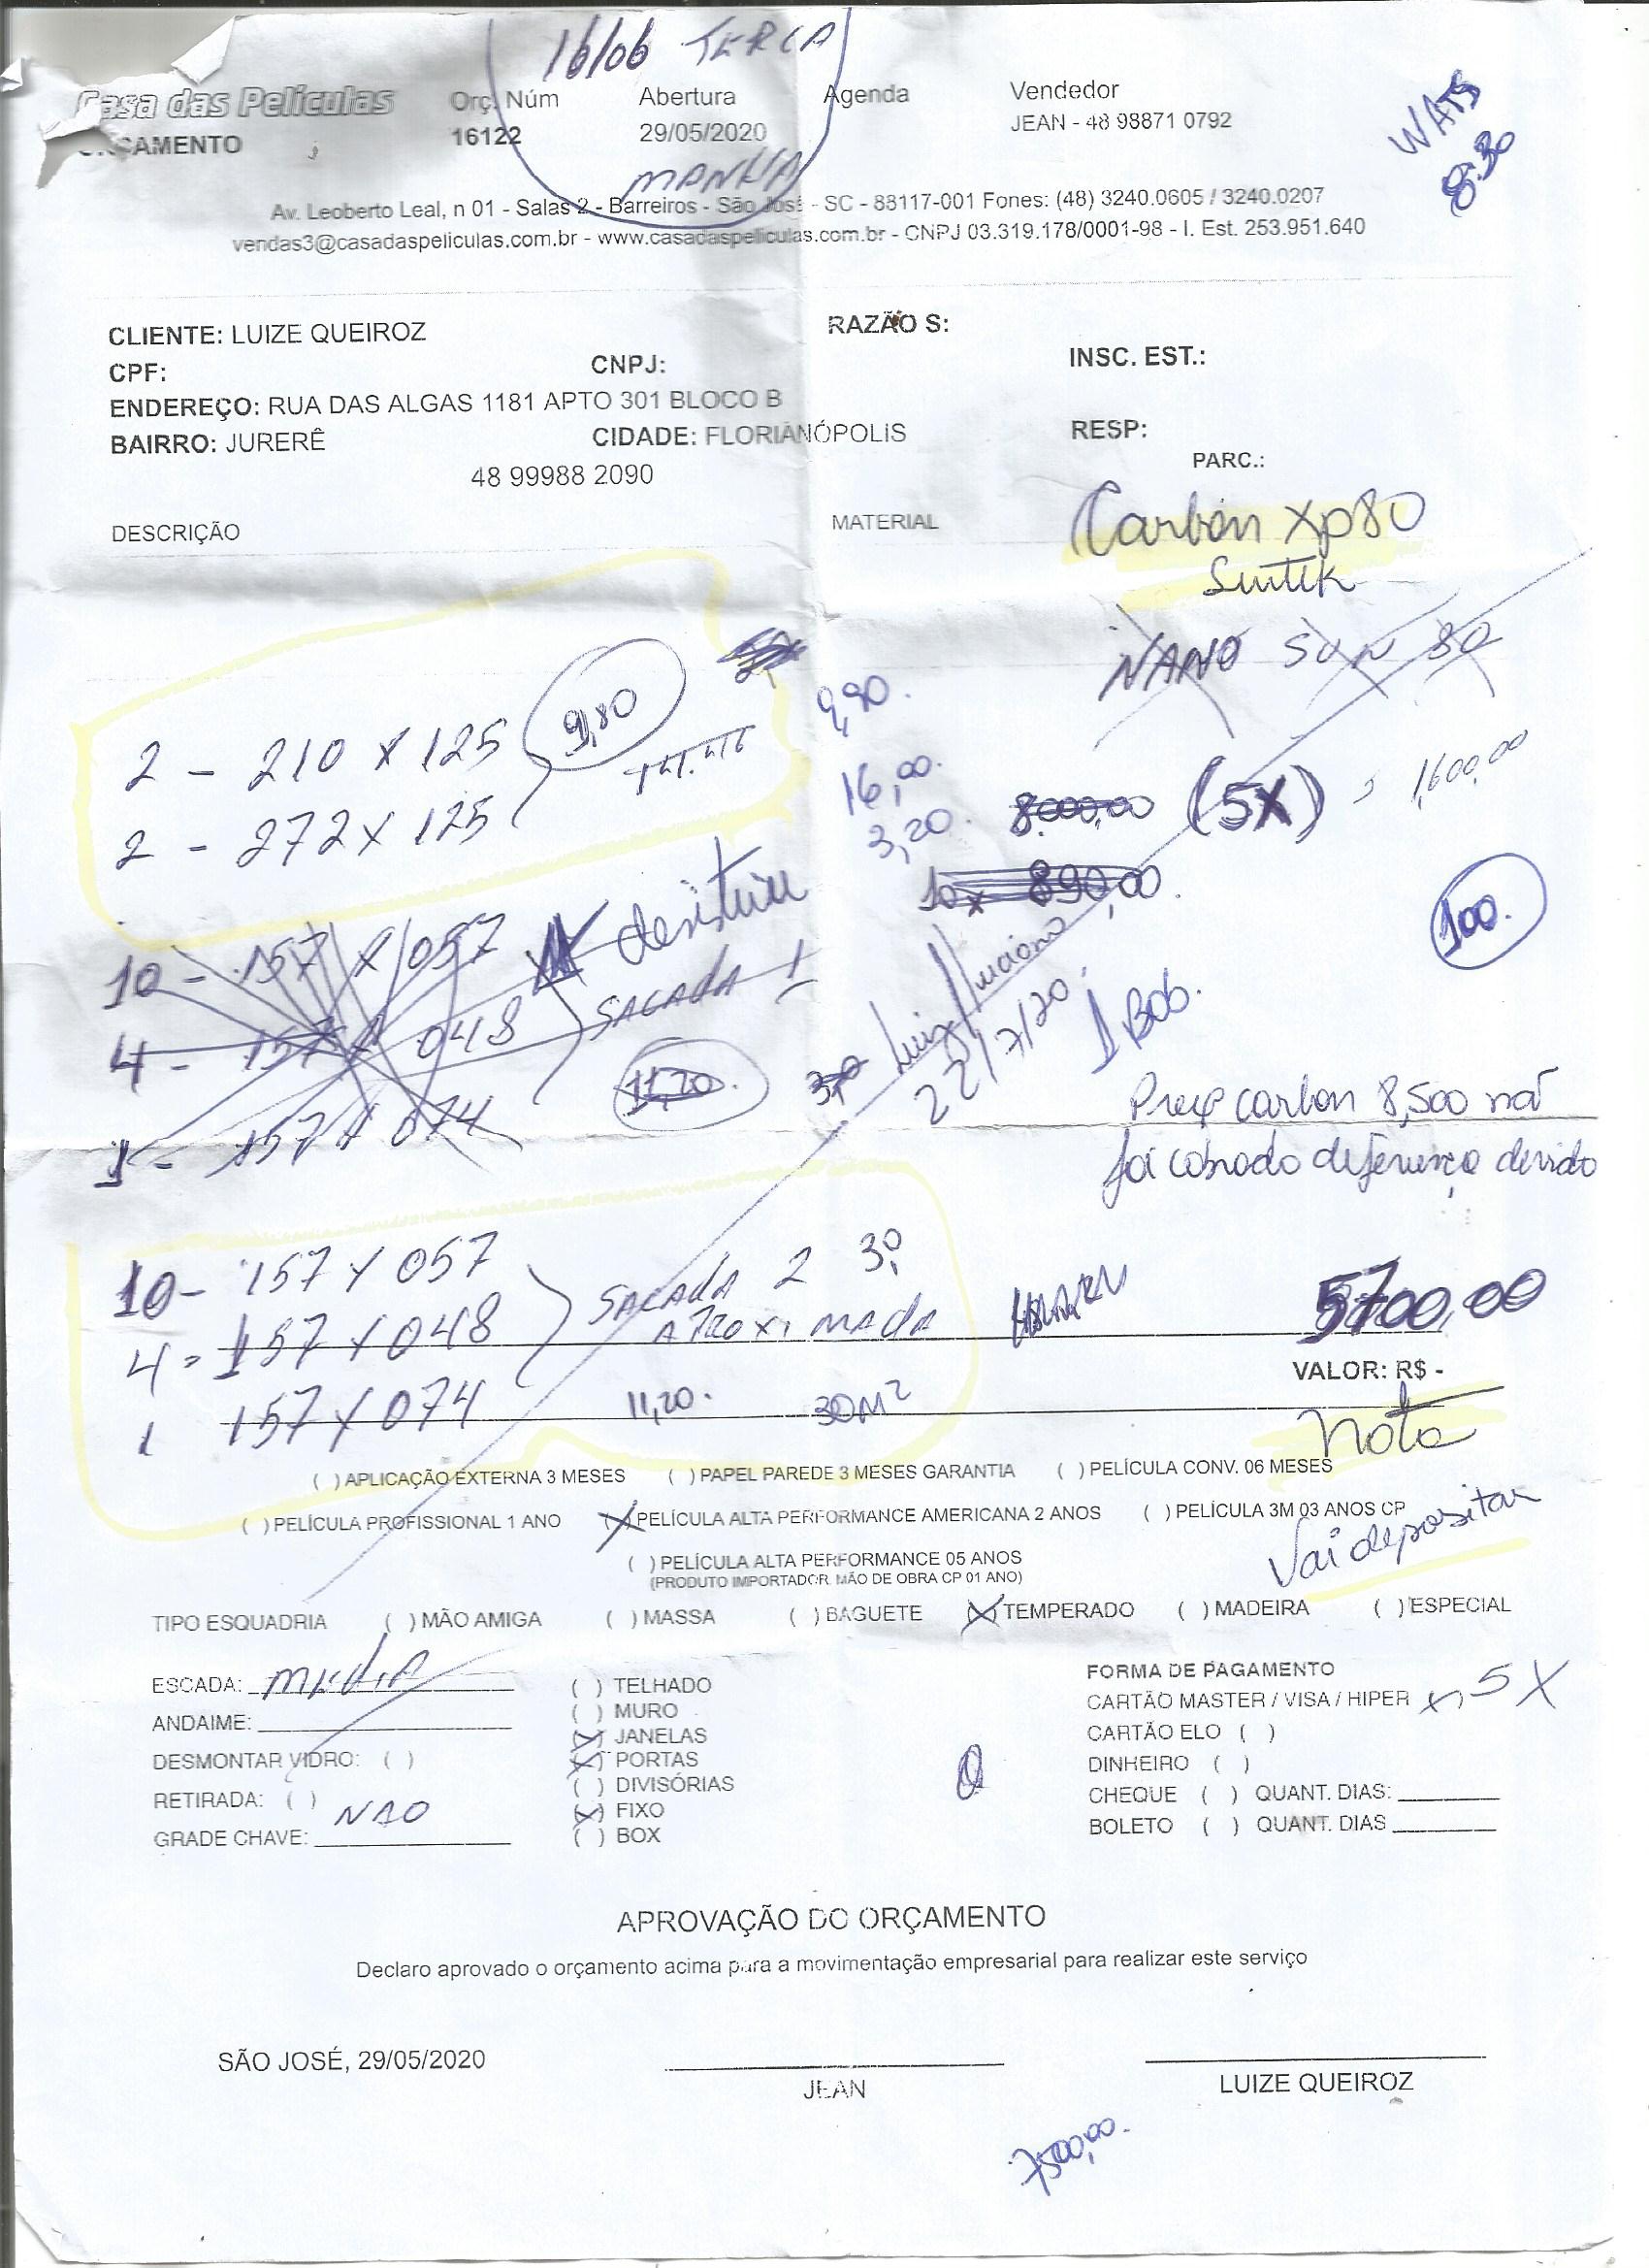 16/06 TERCA
Casa das Películas Orç. Núm Abertura Agenda Vendedor
16122 29/05/2020 JEAN - 48 98871 0792
MANHA
WATS
8:30
Av. Leoberto Leal, n 01 - Salas 2 - Barreiros - São José - SC - 88117-001 Fones: (48) 3240.0605 / 3240.0207
vendas3@casadaspeliculas.com.br - www.casadaspeliculas.com.br - CNPJ 03.319.178/0001-98 - I. Est. 253.951.640
CLIENTE: LUIZE QUEIROZ RAZÃO S:
CPF: CNPJ: INSC. EST.:
ENDEREÇO: RUA DAS ALGAS 1181 APTO 301 BLOCO B
BAIRRO: JURERÊ CIDADE: FLORIANÓPOLIS RESP:
48 99988 2090 PARC.:
DESCRIÇÃO MATERIAL Carbon xp80
NANO SUN 80
2 - 210 x 125 9,80
2 - 272 x 125
9,90.
16,00.
3,20.
8.000,00 (5X) 1,600,00
10x 890,00.
100.
10 - 157 x 057 desistiu
4 - 157 x 048 SACADA 1
1 - 157 x 074 11,20.
22/7/20
1 Bob.
Preço carbon 8,500 não
foi cobrado diferença devido
10 - 157 x 057
4 - 157 x 048 SACADA 2 3º
APROXIMADA
1 157 x 074 11,20. 30M²
5700,00
VALOR: R$ -
Nota
( ) APLICAÇÃO EXTERNA 3 MESES ( ) PAPEL PAREDE 3 MESES GARANTIA ( ) PELÍCULA CONV. 06 MESES
( ) PELÍCULA PROFISSIONAL 1 ANO (X) PELÍCULA ALTA PERFORMANCE AMERICANA 2 ANOS ( ) PELÍCULA 3M 03 ANOS CP
Vai depositar
( ) PELÍCULA ALTA PERFORMANCE 05 ANOS
(PRODUTO IMPORTADOR. MÃO DE OBRA CP 01 ANO)
TIPO ESQUADRIA ( ) MÃO AMIGA ( ) MASSA ( ) BAGUETE (X) TEMPERADO ( ) MADEIRA ( ) ESPECIAL
ESCADA: MEDIA
ANDAIME:
DESMONTAR VIDRO: ( )
RETIRADA: ( )
GRADE CHAVE: NAO
( ) TELHADO
( ) MURO
(X) JANELAS
(X) PORTAS
( ) DIVISÓRIAS
(X) FIXO
( ) BOX
FORMA DE PAGAMENTO
CARTÃO MASTER / VISA / HIPER (x) 5X
CARTÃO ELO ( )
DINHEIRO ( )
CHEQUE ( ) QUANT. DIAS:
BOLETO ( ) QUANT. DIAS
APROVAÇÃO DO ORÇAMENTO
Declaro aprovado o orçamento acima para a movimentação empresarial para realizar este serviço
SÃO JOSÉ, 29/05/2020
JEAN LUIZE QUEIROZ
7500,00.